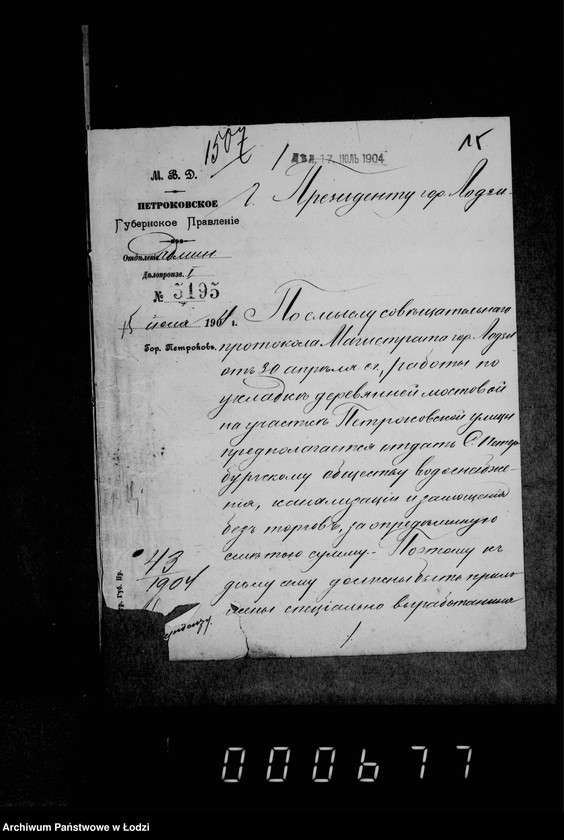 1507
15
1
17 ІЮЛЬ 1904
М. В. Д.
ПЕТРОКОВСКОЕ
Губернское Правленіе
Отдѣленіе Админ
Дѣлопроизв. I
№ 5195
15 іюля 1904 г.
Гор. Петроковъ.
Г. Президенту гор. Лодзи
По смыслу совѣщательнаго
протокола Магистрата гор. Лодзи
отъ 30 апрѣля с.г., работы по
укладкѣ деревянной мостовой
на участкѣ Петроковской улицы
предполагается отдать С. Петер
бургскому обществу водоснабже
нія, канализаціи и замощенія
безъ торговъ, за опредѣленную
смѣтою сумму. Поэтому къ
дѣлу сему должны быть прило
жены спеціально выработанныя
43
1904
Губ. Пр.
1
000677
Archiwum Państwowe w Łodzi